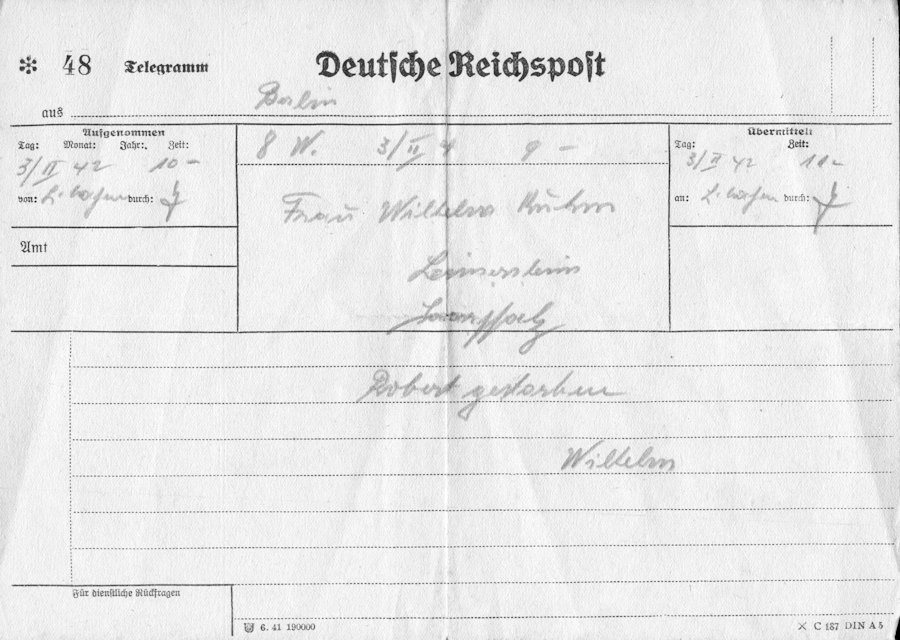 48 Telegramm Deutsche Reichspost
aus Berlin
Aufgenommen
Tag: Monat: Jahr: Zeit:
3/II 42 10 –
von: durch:
Amt
8 W. 3/II 4 9 –
Frau Wilhelm
Leimersheim
Saarpfalz
Übermittelt
Tag: Zeit:
3/II 42 11 –
an: durch:
Robert gestorben
Wilhelm
Für dienstliche Rückfragen
6. 41 190000
C 187 DIN A 5